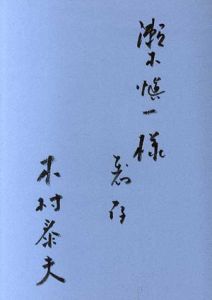 瀬木慎一様
恵存
木村泰夫